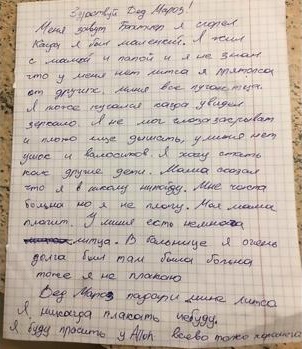 Здраствуй Дед Мароз!
Меня завут Бахтияр я сгорел
Кагда я был маленкей. Я жил
с мамой и папой и я не знаю
что у меня нет литса я прятолса
от других. миня все пугаютца
Я тоже пугался кагда увидел
зеркало. Я не мог глаза закрыват
и плохо ище дышить, у миня нет
ушок и валосиков Я хачу стать
как другие дети. Мама сказал
что я в школу нипойду. Мне чиста
больна но я не плачу. Моя мама
плачит. У миня есть немнога
литца. В балнице я очень
долга был там была больна
тоже я не плакаю
Дед Мароз падари мина литса
Я никагда плакать небуду.
Я буду прасить у